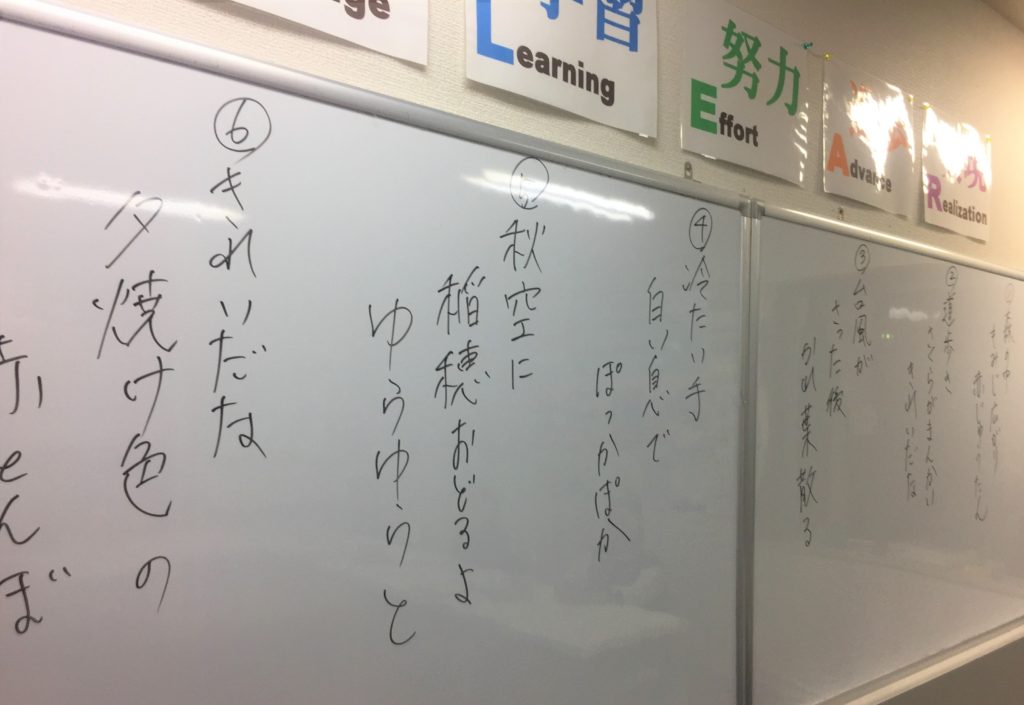 学習
Learning
努力
Effort
Advance
Realization
①森の中
もみじ広がり
赤じゅうたん
②道歩き
さくらがまんかい
きれいだな
③台風が
さった後
かれ葉散る
④冷たい手
白い息で
ぽっかぽか
⑤秋空に
稲穂おどるよ
ゆらゆらと
⑥きれいだな
夕焼け色の
赤とんぼ